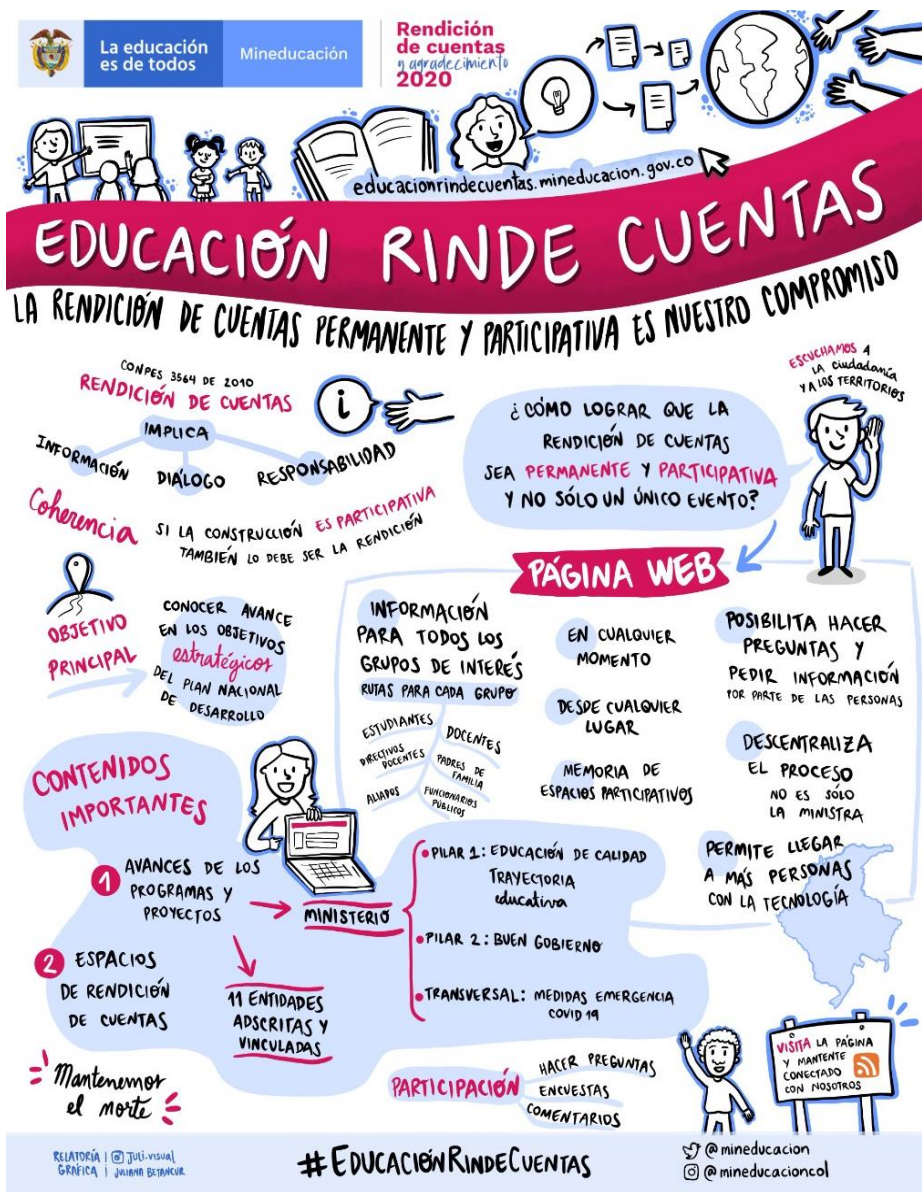 La educación
es de todos
Mineducación
Rendición
de cuentas
y agradecimiento
2020
educacionrindecuentas.mineducacion.gov.co
EDUCACIÓN RINDE CUENTAS
LA RENDICIÓN DE CUENTAS PERMANENTE Y PARTICIPATIVA ES NUESTRO COMPROMISO
CONPES 3564 DE 2010
RENDICIÓN DE CUENTAS
IMPLICA
INFORMACIÓN
DIÁLOGO
RESPONSABILIDAD
i
Coherencia
SI LA CONSTRUCCIÓN ES PARTICIPATIVA
TAMBIÉN LO DEBE SER LA RENDICIÓN
OBJETIVO
PRINCIPAL
CONOCER AVANCE
EN LOS OBJETIVOS
estratégicos
DEL PLAN NACIONAL
DE DESARROLLO
ESCUCHAMOS A
LA ciudadanía
Y A LOS TERRITORIOS
¿CÓMO LOGRAR QUE LA
RENDICIÓN DE CUENTAS
SEA PERMANENTE Y PARTICIPATIVA
Y NO SÓLO UN ÚNICO EVENTO?
PÁGINA WEB
INFORMACIÓN
PARA TODOS LOS
GRUPOS DE INTERÉS
RUTAS PARA CADA GRUPO
ESTUDIANTES
DOCENTES
DIRECTIVOS
DOCENTES
PADRES DE
FAMILIA
ALIADOS
FUNCIONARIOS
PÚBLICOS
EN CUALQUIER
MOMENTO
DESDE CUALQUIER
LUGAR
MEMORIA DE
ESPACIOS PARTICIPATIVOS
POSIBILITA HACER
PREGUNTAS Y
PEDIR INFORMACIÓN
POR PARTE DE LAS PERSONAS
DESCENTRALIZA
EL PROCESO
NO ES SÓLO
LA MINISTRA
PERMITE LLEGAR
A MÁS PERSONAS
CON LA TECNOLOGÍA
CONTENIDOS
IMPORTANTES
1 AVANCES DE LOS
PROGRAMAS Y
PROYECTOS
MINISTERIO
PILAR 1: EDUCACIÓN DE CALIDAD
TRAYECTORIA
educativa
PILAR 2: BUEN GOBIERNO
TRANSVERSAL: MEDIDAS EMERGENCIA
COVID 19
11 ENTIDADES
ADSCRITAS Y
VINCULADAS
2 ESPACIOS
DE RENDICIÓN
DE CUENTAS
Mantenemos
el norte
PARTICIPACIÓN
HACER PREGUNTAS
ENCUESTAS
COMENTARIOS
VISITA LA PÁGINA
Y MANTENTE
CONECTADO
CON NOSOTROS
RELATORÍA
GRÁFICA
Juli.visual
JULIANA BETANCUR
#EDUCACIÓNRINDECUENTAS
@mineducacion
@mineducacioncol